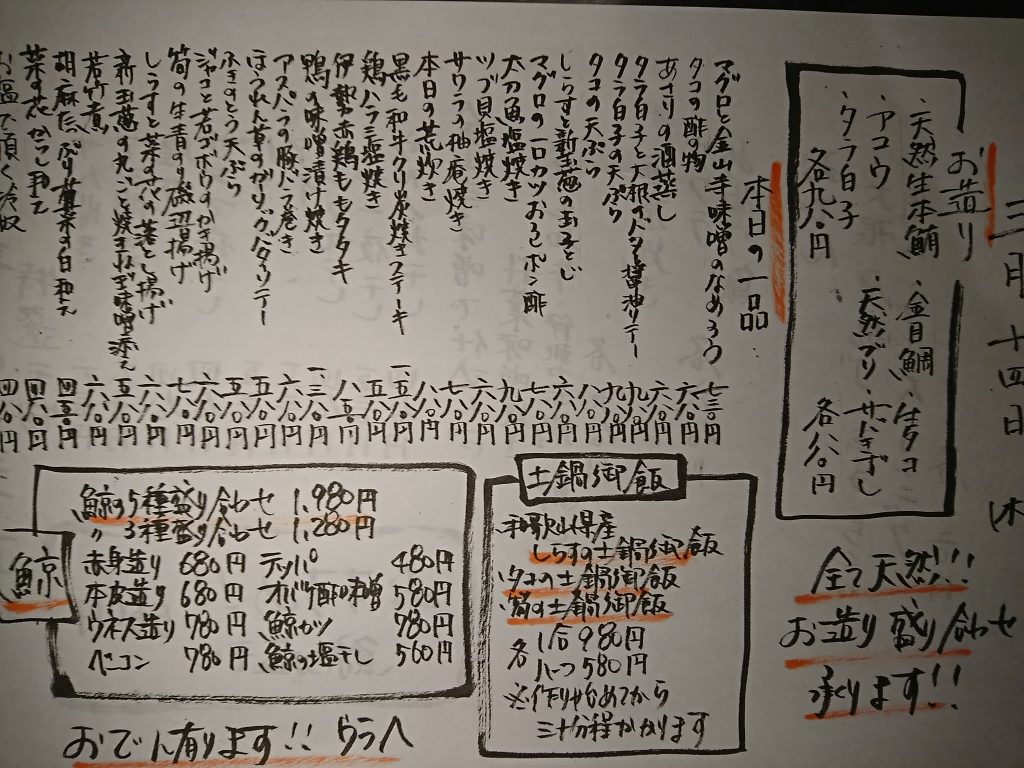 三月十四日
お造り
・天然生本鮪・金目鯛・生タコ
・アコウ・天然ブリ・サバきずし
・タラ白子
各九八〇円
各八八〇円
全て天然!!!
お造り盛り合わせ
承ります!!
本日の一品
マグロと金山寺味噌のなめろう 七三〇円
タコの酢の物 六八〇円
あさりの酒蒸し 六八〇円
タラ白子と大根のバター醤油ソテー 九八〇円
タラ白子の天ぷら 九八〇円
タコの天ぷら 八八〇円
しらすと新玉葱の玉子とじ 六八〇円
マグロの一口カツおろしポン酢 九八〇円
太刀魚塩焼き 九八〇円
ツブ貝塩焼き 六八〇円
サワラの柚庵焼き 七八〇円
本日の荒炊き 八八〇円
黒毛和牛クリ炭焼きステーキ 一、五八〇円
鶏ハラミ塩焼き 五八〇円
伊勢赤鶏ももタタキ 八五〇円
鴨の味噌漬け焼き 一、三八〇円
アスパラの豚バラ巻き 六八〇円
ほうれん草のガーリックバターソテー 五八〇円
ふきのとう天ぷら 五八〇円
ジャコと若ゴボウのかき揚げ 六八〇円
筍の生青のり磯辺揚げ 七八〇円
しらすと菜の花の落とし揚げ 六八〇円
新玉葱の丸ごと焼きねぎ味噌添え 五八〇円
若竹煮 六八〇円
胡麻たっぷり菜の白和え 四五〇円
菜の花からし和え 四八〇円
お塩で頂く冷奴 四八〇円
土鍋御飯
・和歌山県産
しらすの土鍋御飯
・タコの土鍋御飯
・筍の土鍋御飯
各 1合 980円
ハーフ 580円
※作り始めてから
三十分程かかります
鯨
鯨の5種盛り合わせ 1,980円
〃 3種盛り合わせ 1,280円
赤身造り 680円 テッパ 480円
本皮造り 680円 オバケ酢味噌 580円
ウネス造り 780円 鯨カツ 780円
ベーコン 780円 鯨の塩干し 560円
おでん有ります!! ウラへ